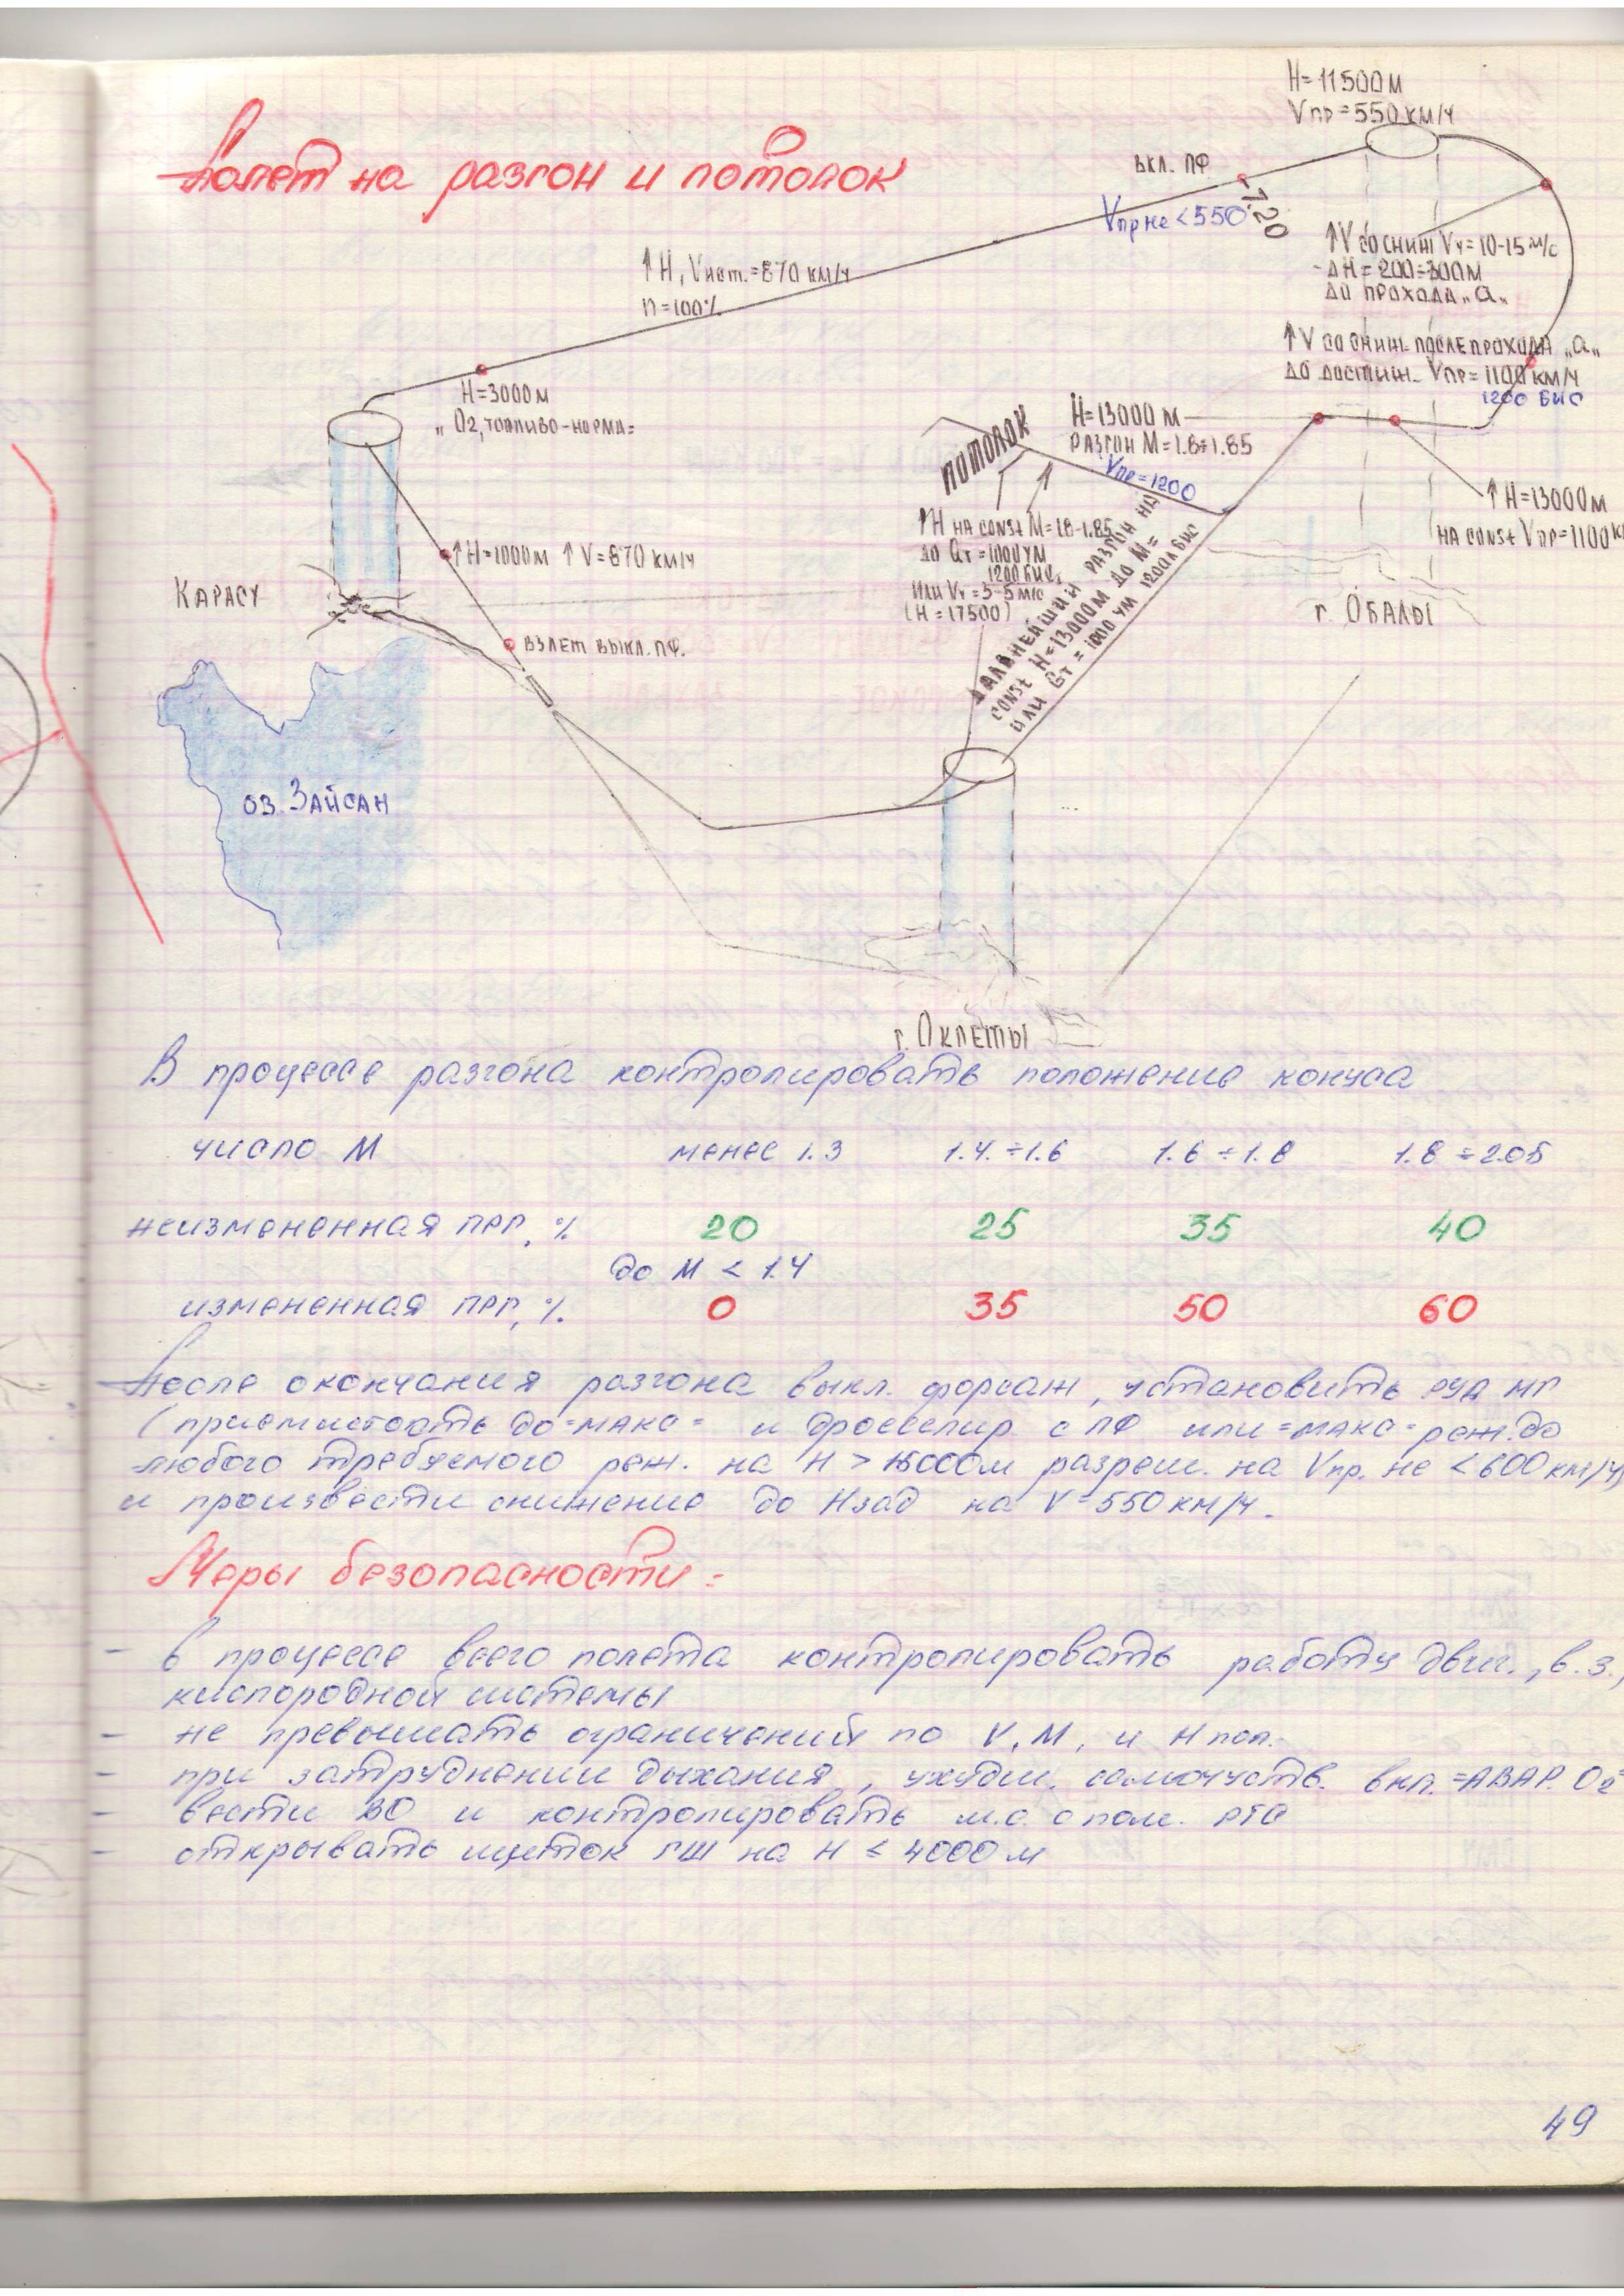 Полет на разгон и потолок
H=11500м
Vпр=550км/ч
вкл. ПФ
Vпр не <550
7.20
↑V со сниж Vу=10-15м/с
-ΔH=200÷300м
до прохода „а„
↑H, Vист.=870 км/ч
n=100%
↑V со сниж. после прохода „а„
до достиж. Vпр=1100км/ч
1200 БИС
H=3000м
„О2, топливо-норма=
Потолок
H=13000 м
разгон M=1.8÷1.85
Vпр=1200
↑H=13000м
на const Vпр=1100к
↑H на const M=1.8-1.85
до Qт=1000УМ
1200 БИС,
или Vу=3-5м/с
(H=17500)
дальнейший разгон на
const H=13000м до M=
или Gт = 1000 УМ 1200л БИС
↑H=1000м ↑V=870 км/ч
Карасу
взлет выкл. ПФ.
г. Обалы
оз. Зайсан
г. Оклеты
В процессе разгона контролировать положение конуса
число М менее 1.3 1.4.÷1.6 1.6÷1.8 1.8÷2.05
неизмененная прг, % 20 25 35 40
до М < 1.4
измененная прг, %. 0 35 50 60
После окончания разгона выкл. форсаж, установить РУД МГ
(приемистость до =макс= и дросселир с ПФ или =макс= реж. до
любого требуемого реж. на H > 15000м разреш. на Vпр. не <600км/ч)
и произвести снижение до Hзад на V=550км/ч.
Меры безопасности:
- в процессе всего полета контролировать работу двиг., в.з.,
кислородной системы
- не превышать ограничений по V, M, и H пол.
- при затруднении дыхания, ухудш. самочуств. вкл. =АВАР. О2=
- вести ВО и контролировать м.с. с пом. РТС
- открывать щиток ГШ на H ≤ 4000м
49